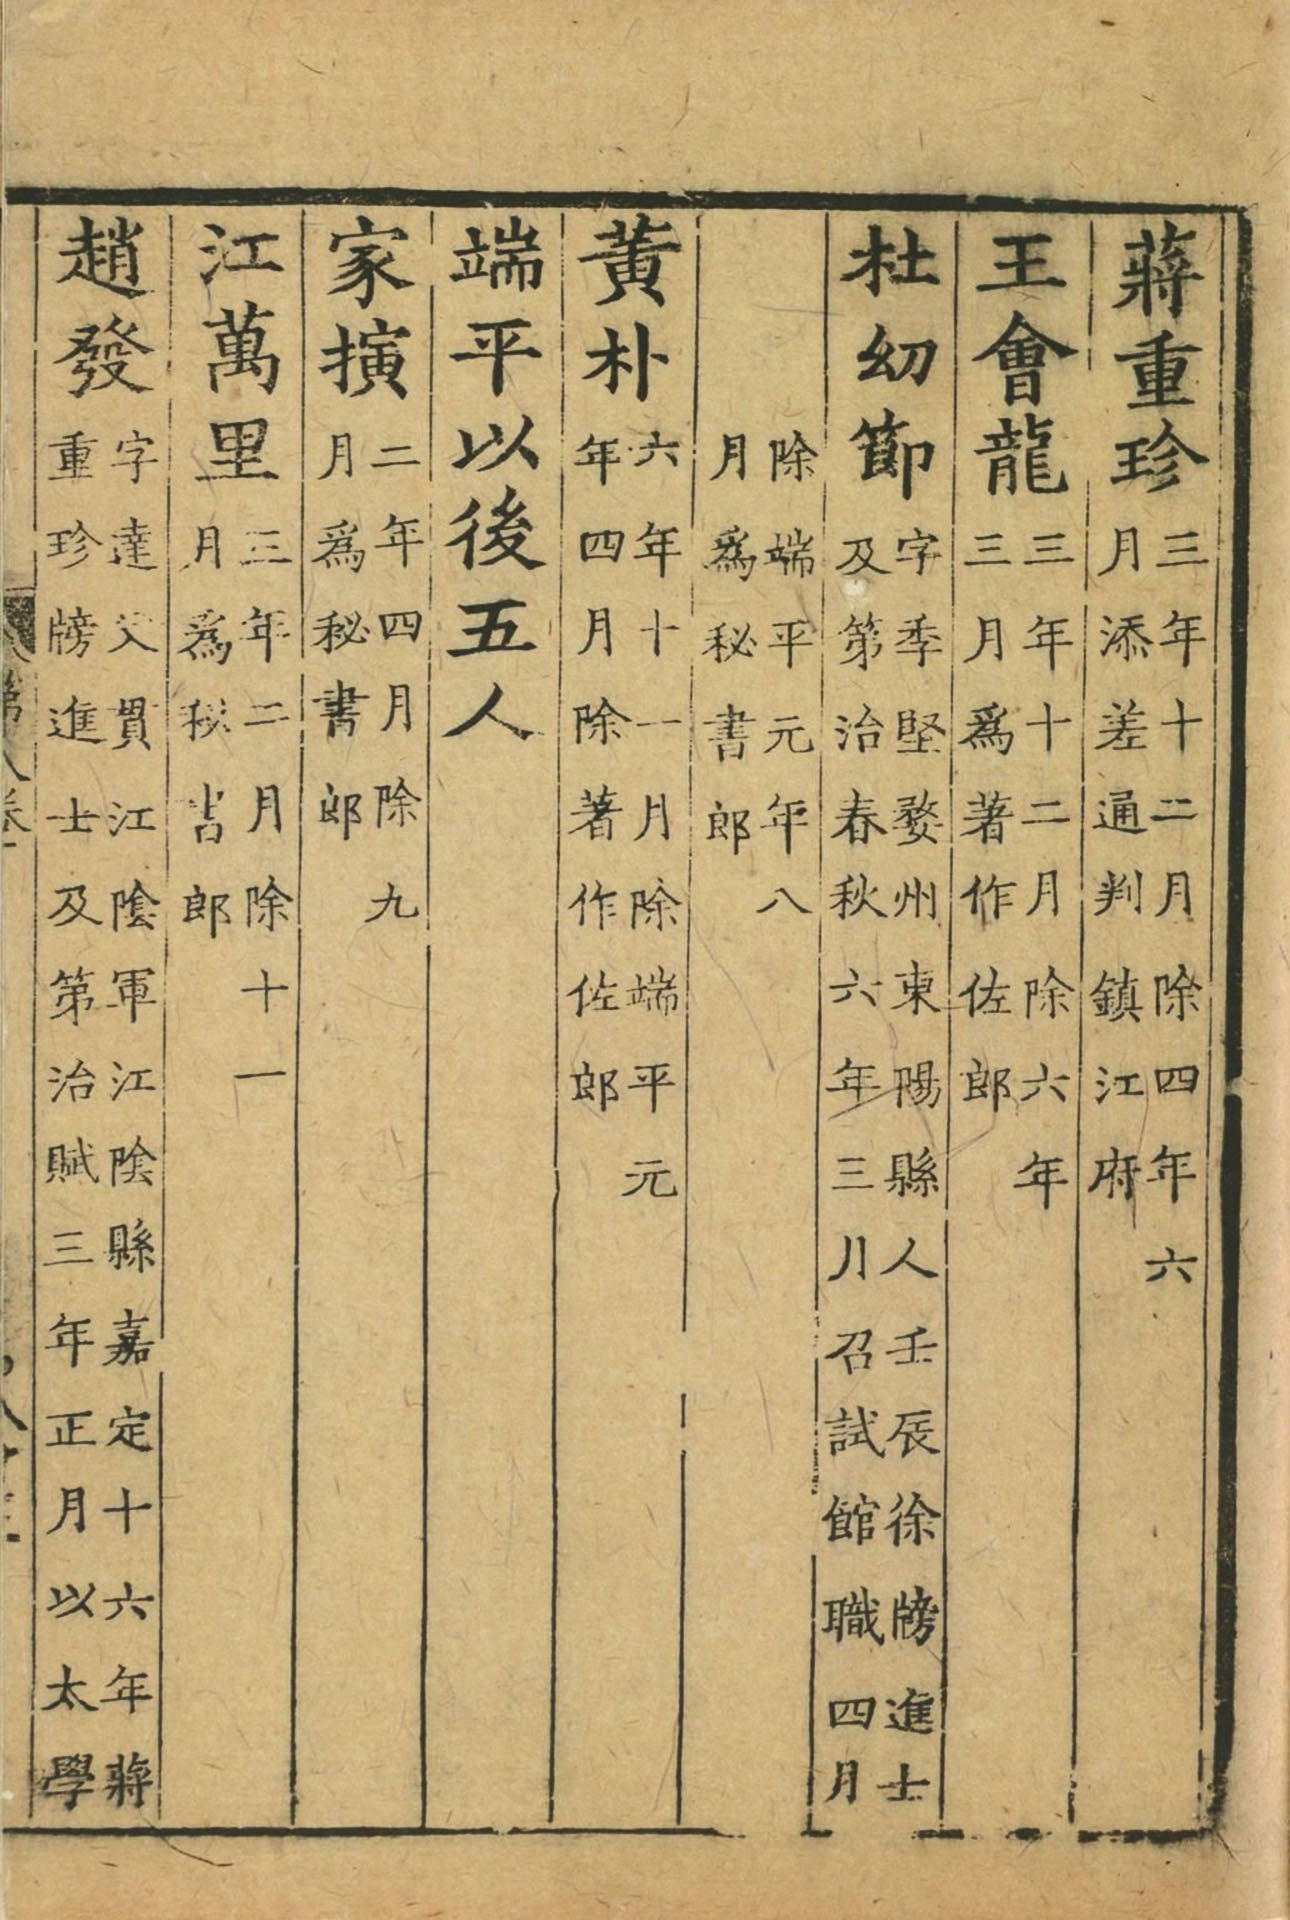 蔣重珍三年十二月除四年六
月添差通判鎮江府
王會龍三年十二月除六年
三月爲著作佐郎
杜幼節字季堅婺州東陽縣人壬辰徐牓進士
及第治春秋六年三月召試館職四月
除端平元年八
月爲秘書郎
黃朴六年十一月除端平元
年四月除著作佐郎
端平以後五人
家摛二年四月除九
月爲秘書郎
江萬里三年二月除十一
月爲秘書郎
趙發字達父貫江陰軍江陰縣嘉定十六年蔣
重珍牓進士及第治賦三年正月以太學